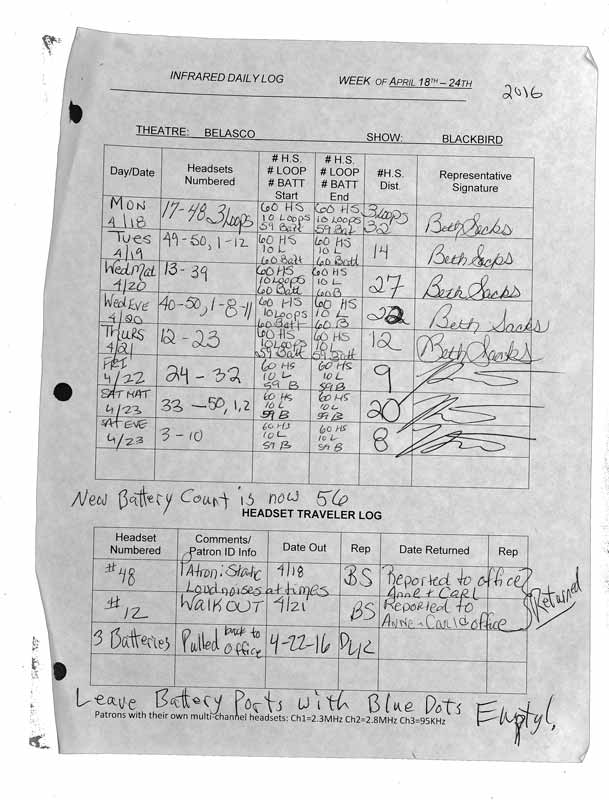 INFRARED DAILY LOG WEEK OF APRIL 18TH – 24TH 2016
THEATRE: BELASCO SHOW: BLACKBIRD
Day/Date Headsets Numbered # H.S. # LOOP # BATT Start # H.S. # LOOP # BATT End #H.S. Dist. Representative Signature
MON 4/18 17-48 3 Loops 60 HS 10 Loops 59 Batt 60 HS 10 Loops 59 Bat 3 Loops 32 Beth Sacks
Tues 4/19 49-50, 1-12 60 HS 10 L 60 Batt 60 HS 10 L 60 Batt 14 Beth Sacks
Wed Mat 4/20 13-39 60 HS 10 Loops 60 Batt 60 HS 10 L 60 B 27 Beth Sacks
Wed EVE 4/20 40-50, 1-8-11 60 HS 10 Loops 60 Batt 60 HS 10 L 60 B 22 Beth Sacks
THURS 4/21 12-23 60 HS 10 Loops 59 Batt 60 HS 10 L 59 Batt 12 Beth Sacks
FRI 4/22 24-32 60 HS 10 L 59 B 60 HS 10 L 59 B 9
SAT MAT 4/23 33-50, 1, 2 60 HS 10 L 59 B 60 HS 10 L 59 B 20
SAT EVE 4/23 3-10 60 HS 10 L 59 B 60 HS 10 L 59 B 8
New Battery Count is now 56
HEADSET TRAVELER LOG
Headset Numbered Comments/ Patron ID Info Date Out Rep Date Returned Rep
#48 Patron: Static Loud noises at times 4/18 BS Reported to office Anne + Carl
#12 WALKOUT 4/21 BS Reported to Anne + Carl's office Returned
3 Batteries Pulled back to office 4-22-16
Leave Battery Ports with Blue Dots Empty!
Patrons with their own multi-channel headsets: Ch1=2.3MHz Ch2=2.8MHz Ch3=95KHz